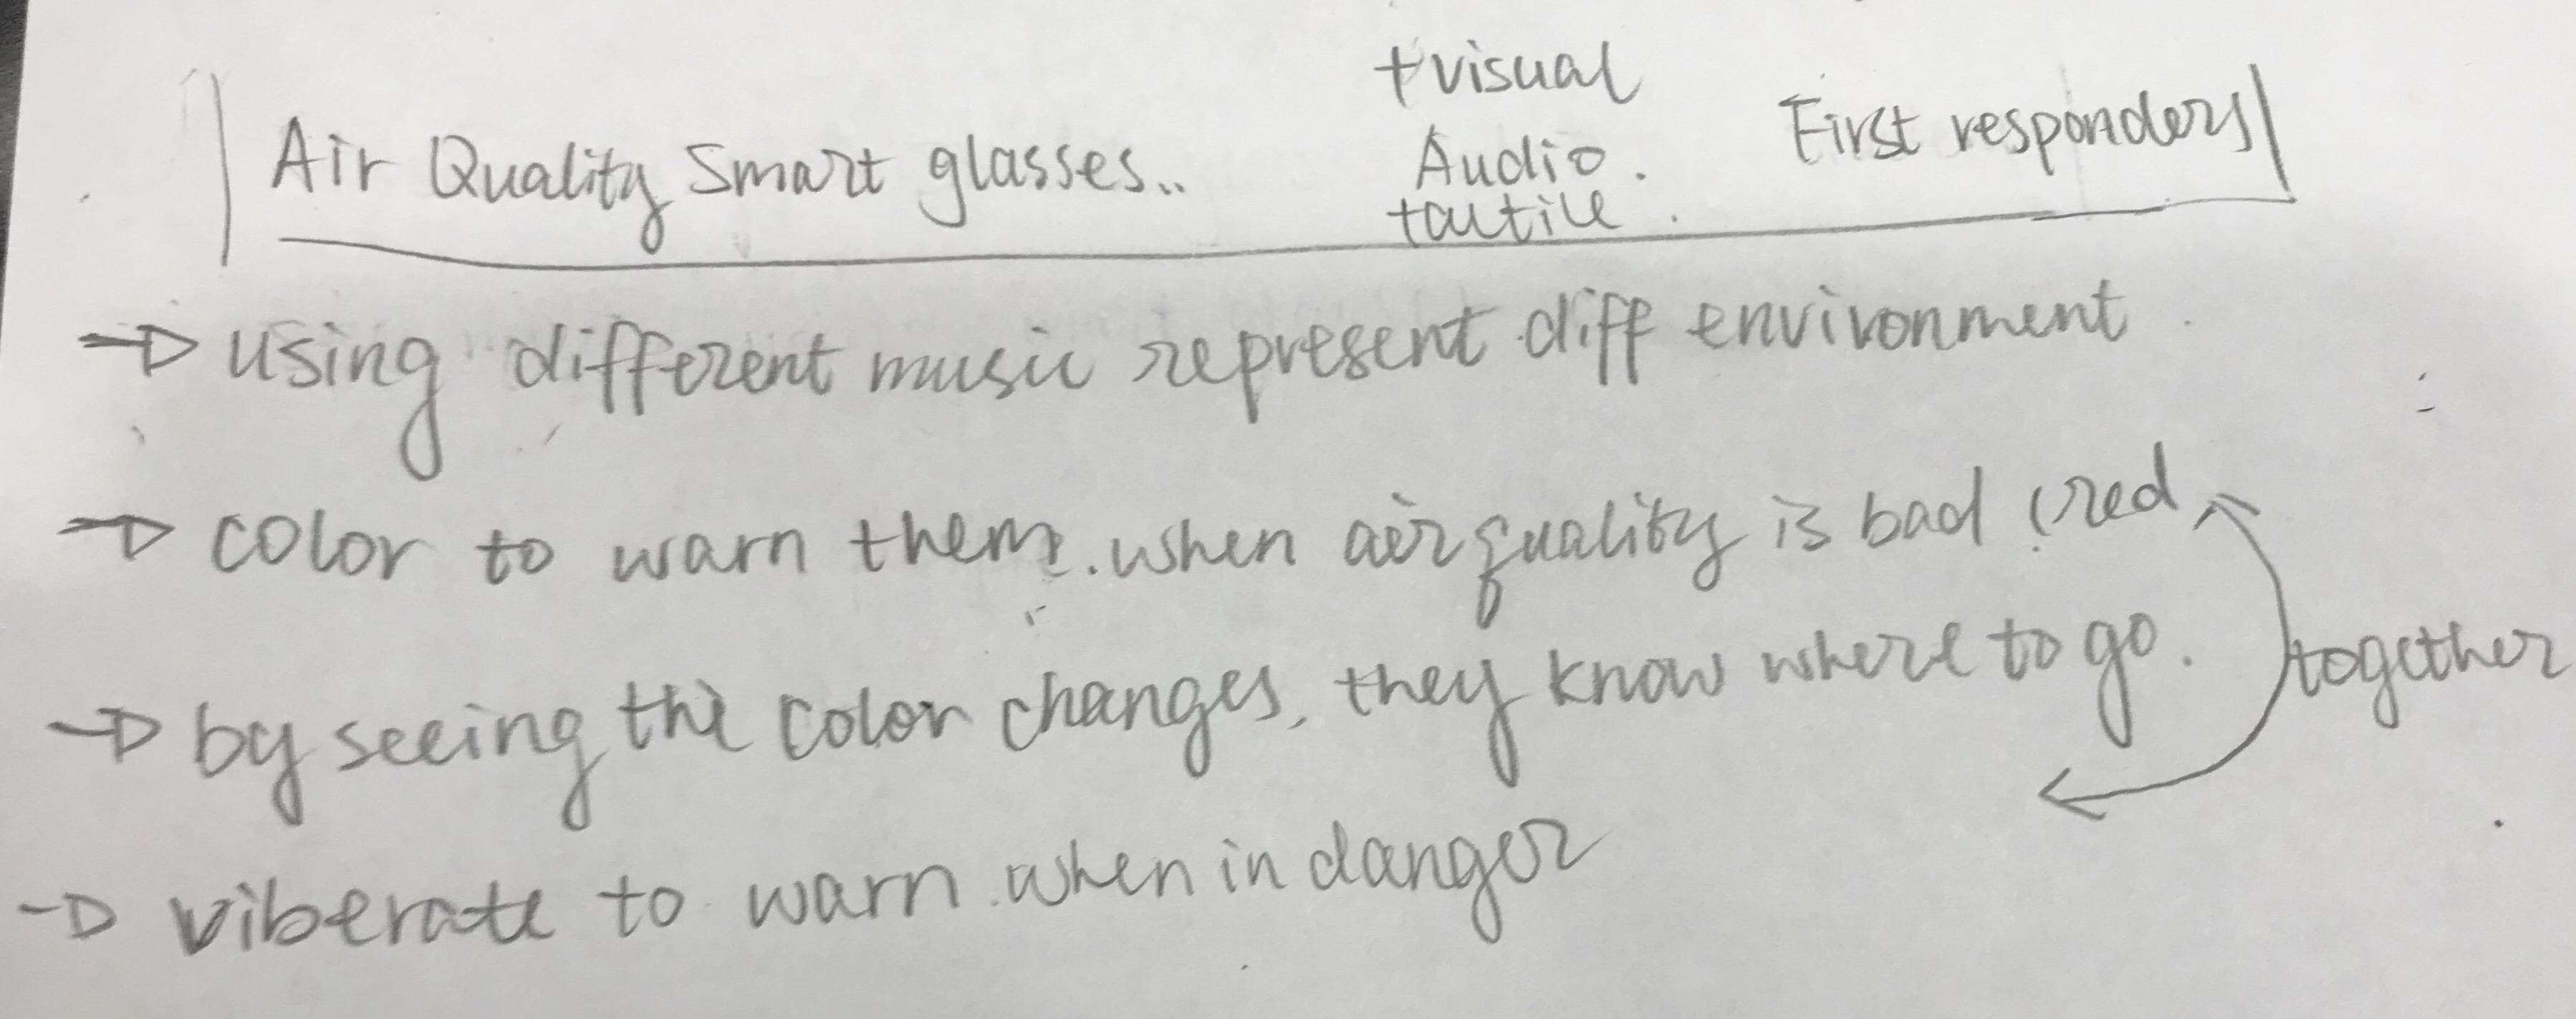 +visual
Air Quality Smart glasses.. Audio. First responders
tactile.
→ using different music represent diff environment
→ color to warn them. when air quality is bad (red
→ by seeing the color changes, they know where to go.
together
→ viberate to warn when in danger